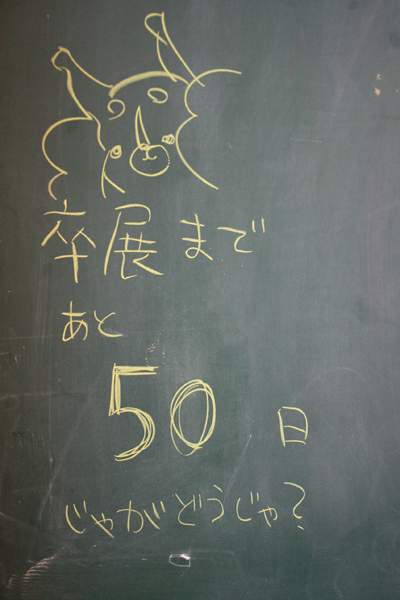 卒展まで
あと
50日
じゃがどうじゃ?